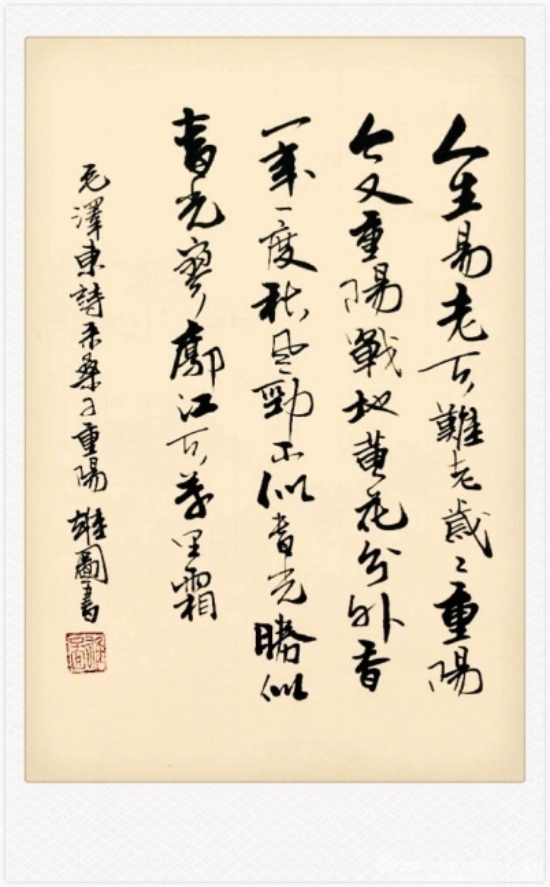 人生易老天難老歲々重陽
今又重陽戰地黄花分外香
一年一度秋風勁不似春光勝似
春光寥廓江天萬里霜
毛澤東詩采桑子重陽 雄圖書